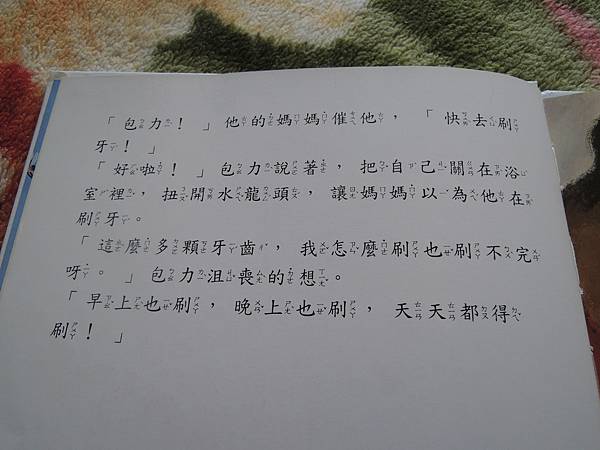 「包力！」他的媽媽催他，「快去刷
牙！」
「好啦！」包力說著，把自己關在浴
室裡，扭開水龍頭，讓媽媽以為他在
刷牙。
「這麼多顆牙齒，我怎麼刷也刷不完
呀。」包力沮喪的想。
「早上也刷，晚上也刷，天天都得
刷！」